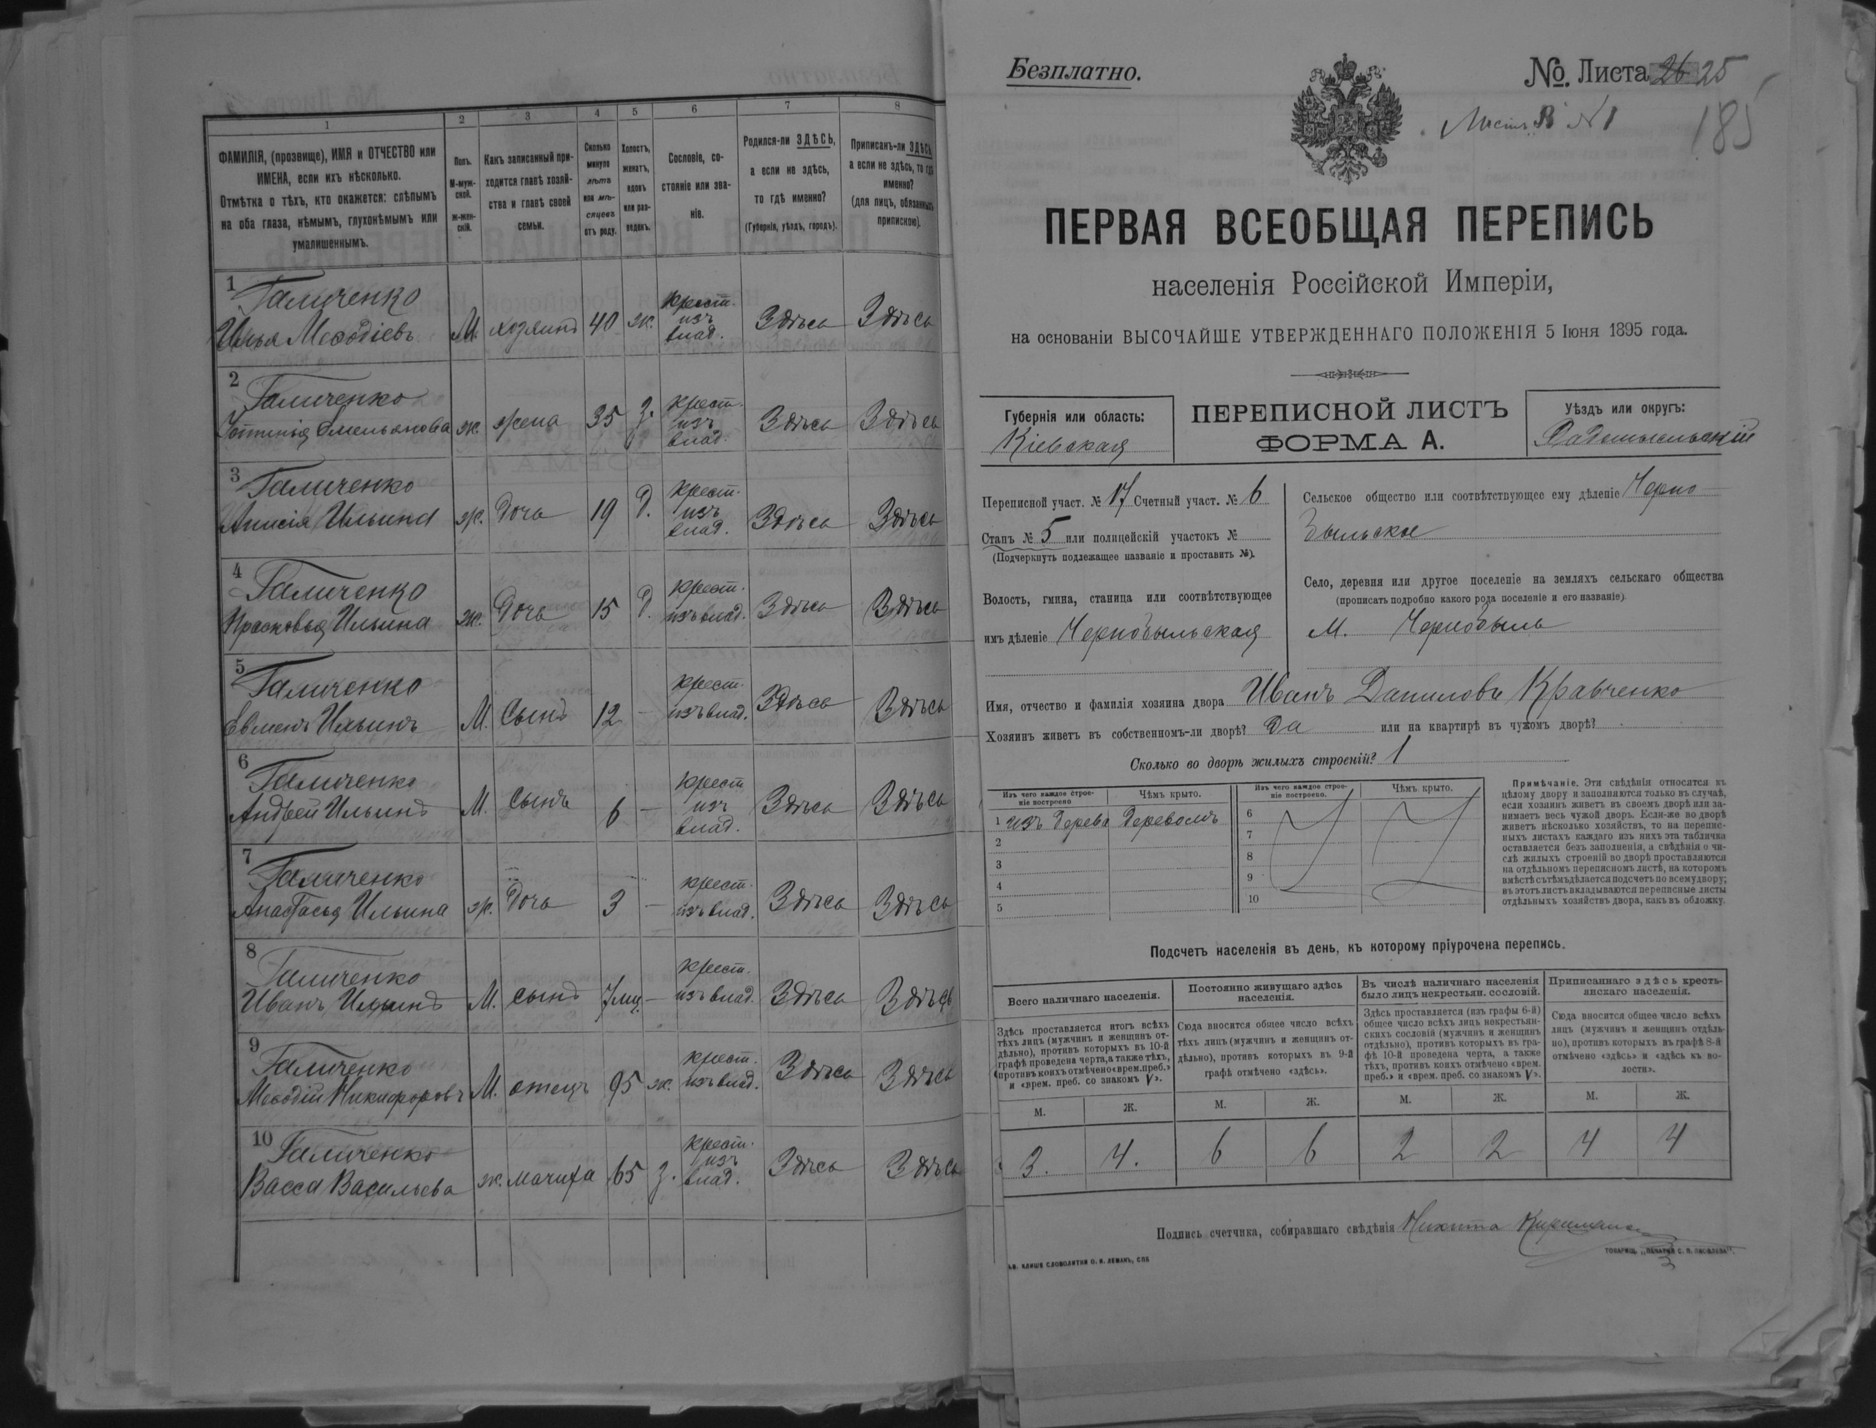 1
2
3
4
5
6
7
8
ФАМИЛІЯ, (прозвище), ИМЯ и ОТЧЕСТВО или
ИМЕНА, если ихъ нѣсколько.
Отмѣтка о тѣхъ, кто окажется: слѣпымъ
на оба глаза, нѣмымъ, глухонѣмымъ или
умалишеннымъ.
Полъ.
М-муж-
ской.
ж-жен-
скій.
Какъ записанный при-
ходится главѣ хозяй-
ства и главѣ своей
семьи.
Сколько
минуло
лѣтъ
или мѣ-
сяцевъ
отъ роду.
Холостъ,
женатъ,
вдовъ
или раз-
веденъ.
Сословіе, со-
стояніе или зва-
ніе.
Родился-ли ЗДѢСЬ,
а если не здѣсь,
то гдѣ именно?
(Губернія, уѣздъ, городъ).
Приписанъ-ли ЗДѢСЬ,
а если не здѣсь, то гдѣ
именно?
(для лицъ, обязанныхъ
припискою).
1 Галиченко
Илья Меѳодіевъ М. хозяинъ 40 ж. крест. изъ влад. Здѣсь Здѣсь
2 Галиченко
Устинья Омельянова ж. жена 35 з. крест. изъ влад. Здѣсь Здѣсь
3 Галиченко
Анисія Ильина ж. Дочь 19 д. крест. изъ влад. Здѣсь Здѣсь
4 Галиченко
Прасковья Ильина ж. Дочь 15 д. крест. изъ влад. Здѣсь Здѣсь
5 Галиченко
Евменъ Ильинъ М. Сынъ 12 – крест. изъ влад. Здѣсь Здѣсь
6 Галиченко
Андрей Ильинъ М. Сынъ 6 – крест. изъ влад. Здѣсь Здѣсь
7 Галиченко
Анастасья Ильина ж. Дочь 3 – крест. изъ влад. Здѣсь Здѣсь
8 Галиченко
Иванъ Ильинъ М. сынъ 7 мц. – крест. изъ влад. Здѣсь Здѣсь
9 Галиченко
Меѳодій Никифоровъ М. отецъ 95 ж. крест. изъ влад. Здѣсь Здѣсь
10 Галиченко
Васса Васильева ж. мачиха 65 з. крест. изъ влад. Здѣсь Здѣсь
Безплатно.
№. Листа 26 25
Листъ В №1
185
ПЕРВАЯ ВСЕОБЩАЯ ПЕРЕПИСЬ
населенія Россійской Имперіи,
на основаніи ВЫСОЧАЙШЕ УТВЕРЖДЕННАГО ПОЛОЖЕНІЯ 5 Іюня 1895 года.
Губернія или область:
Кіевская
ПЕРЕПИСНОЙ ЛИСТЪ
ФОРМА А.
Уѣздъ или округъ:
Радомысльскій
Переписной участ. № 17 Счетный участ. № 6
Станъ № 5 или полицейскій участокъ №
(Подчеркнуть подлежащее названіе и проставить №).
Волость, гмина, станица или соотвѣтствующее
имъ дѣленіе Чернобыльская
Сельское общество или соотвѣтствующее ему дѣленіе Черно-
быльское
Село, деревня или другое поселеніе на земляхъ сельскаго общества
(прописать подробно какого рода поселеніе и его названіе)
М. Чернобыль
Имя, отчество и фамилія хозяина двора Иванъ Даниловъ Кравченко
Хозяинъ живетъ въ собственномъ-ли дворѣ? Да или на квартирѣ въ чужомъ дворѣ?
Сколько во дворѣ жилыхъ строеній? 1
Изъ чего каждое строе-
ніе построено
Чѣмъ крыто.
Изъ чего каждое строе-
ніе построено.
Чѣмъ крыто.
1 изъ дерева Деревомъ
2
3
4
5
6
7
8
9
10
Примѣчаніе. Эти свѣдѣнія относятся къ
цѣлому двору и заполняются только въ случаѣ,
если хозяинъ живетъ въ своемъ дворѣ или за-
нимаетъ весь чужой дворъ. Если-же во дворѣ
живетъ нѣсколько хозяйствъ, то на перепис-
ныхъ листахъ каждаго изъ нихъ эта табличка
оставляется безъ заполненія, а свѣдѣнія о чи-
слѣ жилыхъ строеній во дворѣ проставляются
на отдѣльномъ переписномъ листѣ, на которомъ
вмѣстѣ съ тѣмъ дѣлается подсчетъ по всему двору;
въ этотъ листъ вкладываются переписные листы
отдѣльныхъ хозяйствъ двора, какъ въ обложку.
Подсчетъ населенія въ день, къ которому пріурочена перепись.
Всего наличнаго населенія.
Постоянно живущаго здѣсь
населенія.
Въ числѣ наличнаго населенія
было лицъ некрестьян. сословій.
Приписаннаго здѣсь кресть-
янскаго населенія.
Здѣсь проставляется итогъ всѣхъ
тѣхъ лицъ (мужчинъ и женщинъ от-
дѣльно), противъ которыхъ въ 10-й
графѣ проведена черта, а также тѣхъ,
противъ коихъ отмѣчено «врем. преб.»
и «врем. преб. со знакомъ V».
Сюда вносится общее число всѣхъ
тѣхъ лицъ (мужчинъ и женщинъ от-
дѣльно), противъ которыхъ въ 9-й
графѣ отмѣчено «здѣсь».
Здѣсь проставляется (изъ графы 6-й)
общее число всѣхъ лицъ некрестьян-
скихъ сословій (мужчинъ и женщинъ
отдѣльно), противъ которыхъ въ гра-
фѣ 10-й проведена черта, а также
тѣхъ, противъ коихъ отмѣчено «врем.
преб.» и «врем. преб. со знакомъ V».
Сюда вносится общее число всѣхъ
лицъ (мужчинъ и женщинъ отдѣль-
но), противъ которыхъ въ графѣ 8-й
отмѣчено «здѣсь» и «здѣсь къ во-
лости».
М. Ж. М. Ж. М. Ж. М. Ж.
3. 4. 6 6 2 2 4 4
Подпись счетчика, собиравшаго свѣдѣнія Никита
СЛОВОЛИТНИ О. И. ЛЕМАНЪ, СПБ